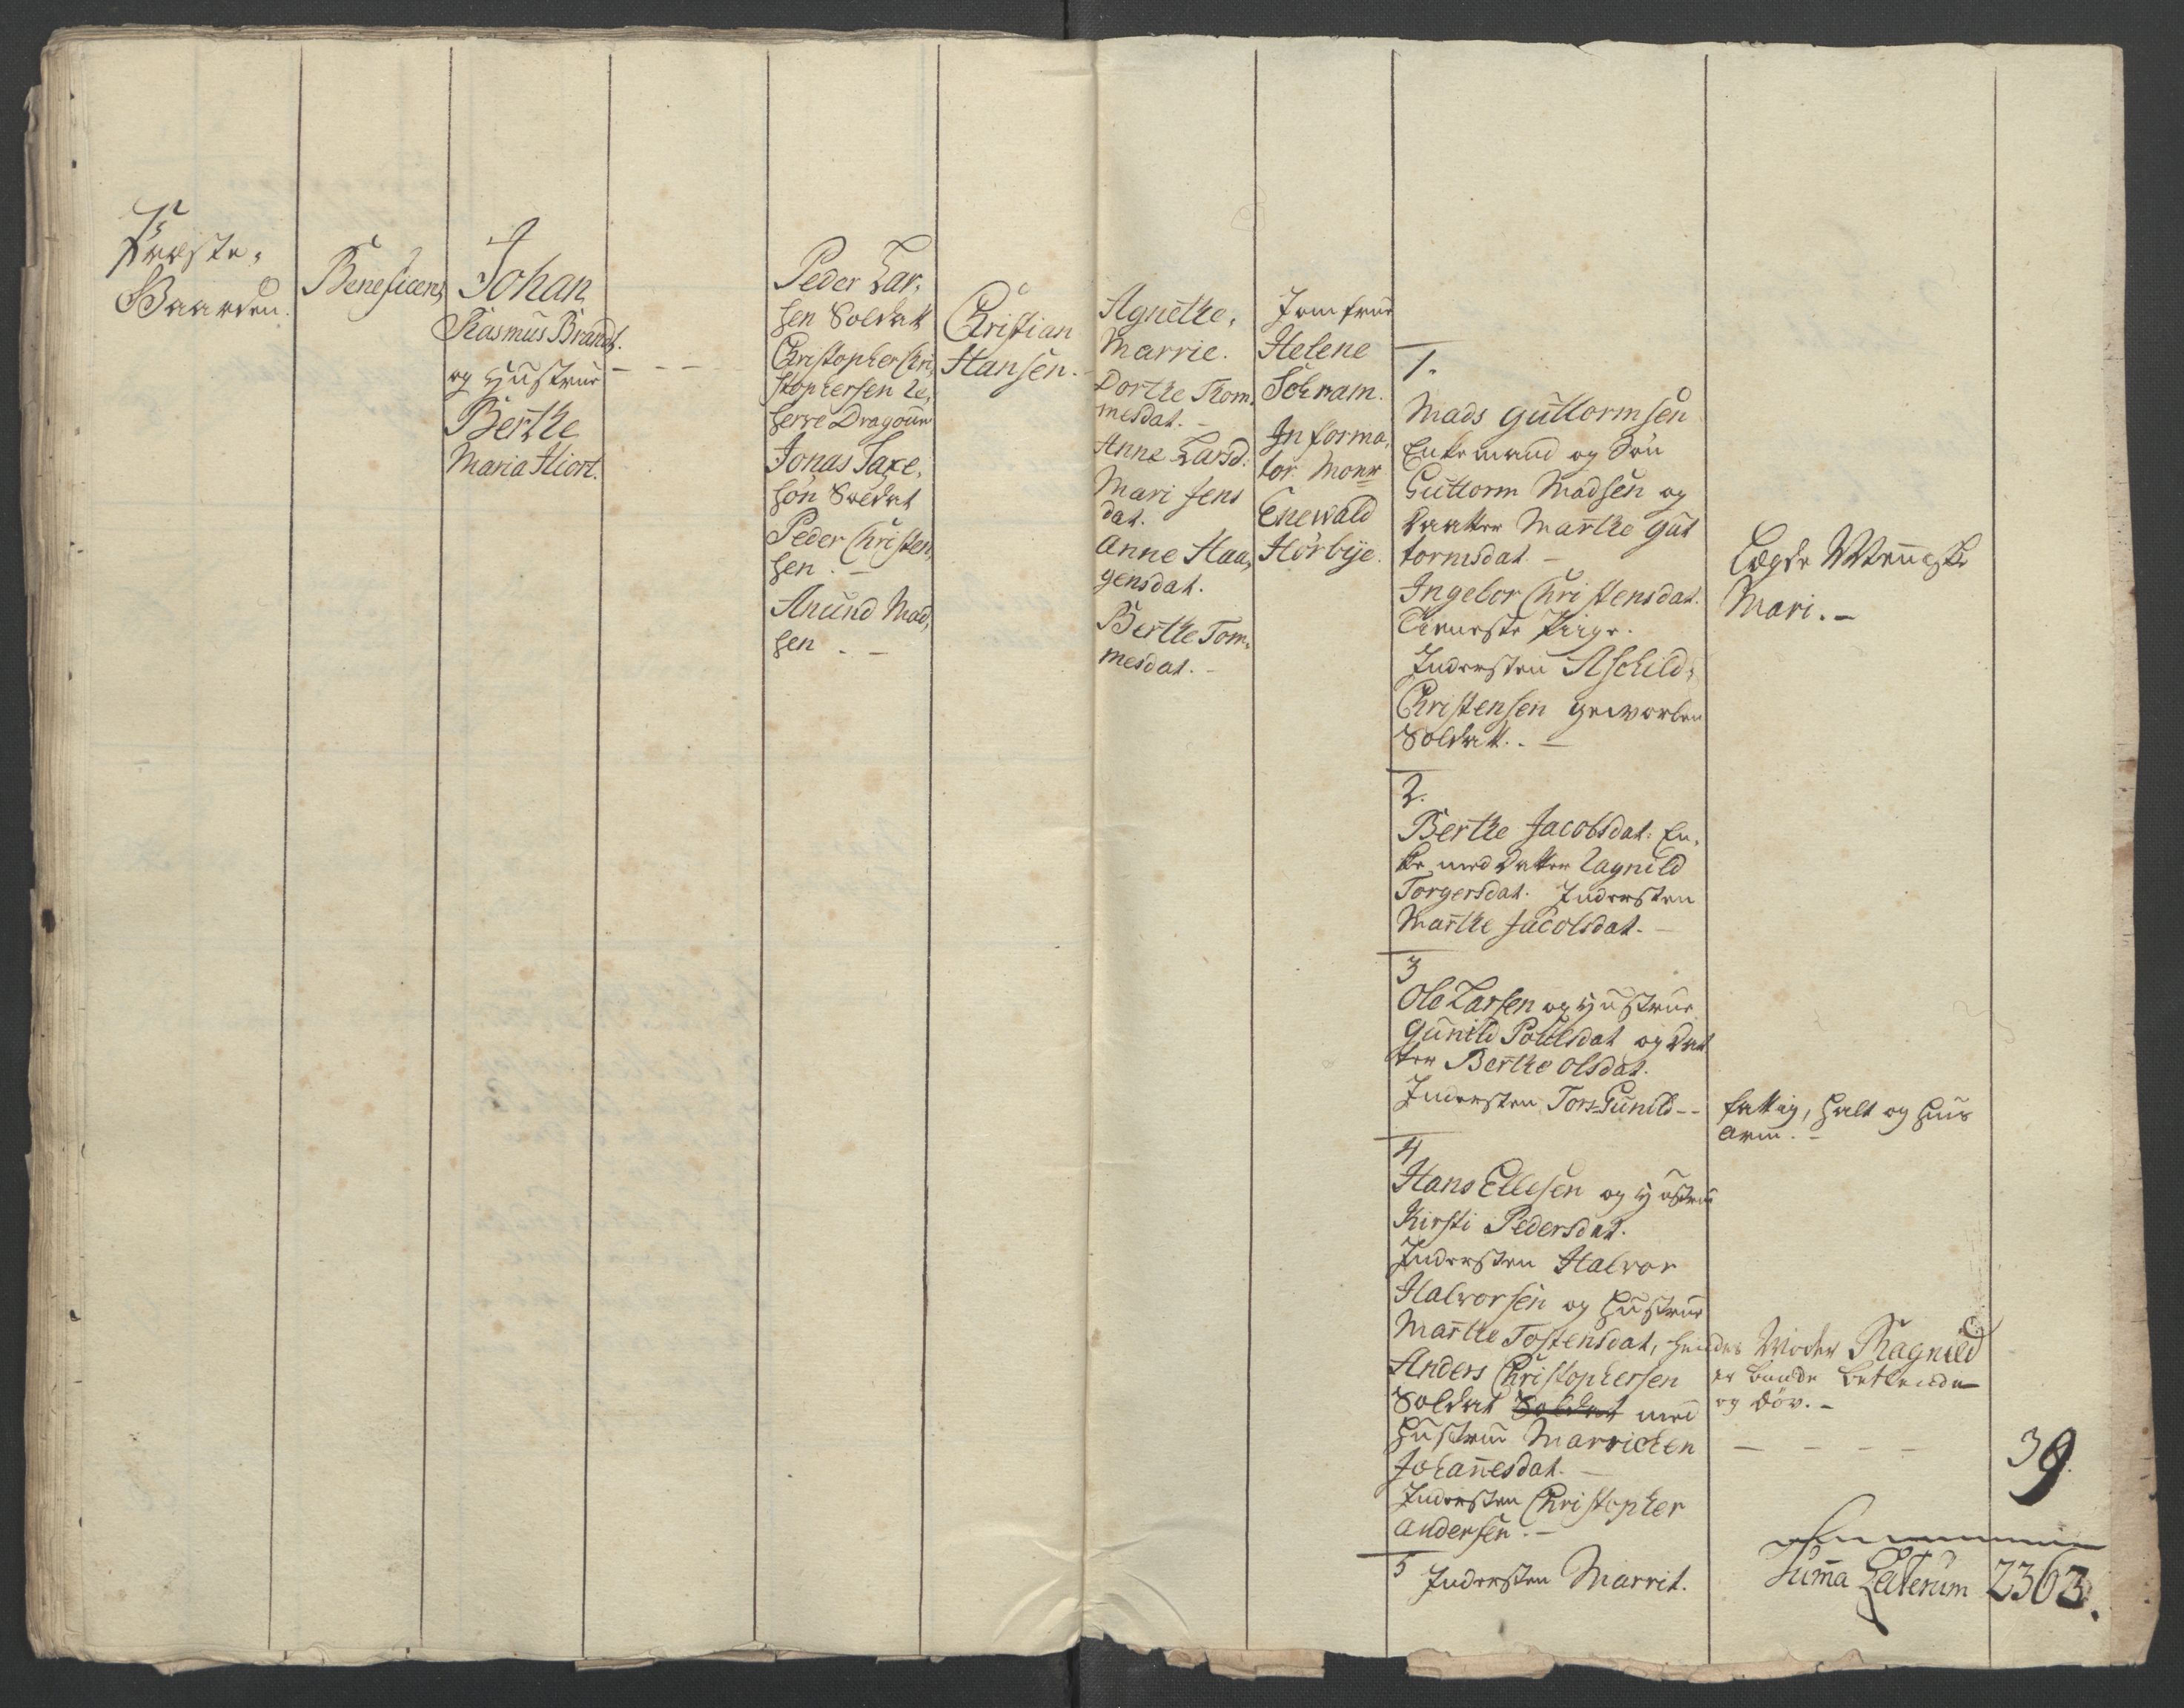 Præste-
Gaarden.
Beneficeret
Johan
Rasmus Brandt.
og Hustrue
Berthe
Maria Hiort.
- - - -
Peder Lar-
sen Soldat
Christopher Chri-
stophersen re-
serve Dragoun
Jonas Saxe-
søn Soldat
Peder Christen-
sen . -
Anund Mad-
sen . -
Christian
Hansen.
Agnethe-
Marrie.
Dorthe Thom-
mesdat. -
Anne Larsd:
Mari Jens
dat.
Anne Haa-
gensdat.
Berthe Tom-
mesdat. -
Jomfrue
Helene
Schram.
Informa-
tor Monr
Enewald
Hörbye.
1.
Mads Guttormsen
Enkemand og Søn
Guttorm Madsen og
Daatter Marthe Gut
tormsdat. -
Ingebor Christensdat.
Tieneste Piige.
Indersten Aschild-
Christensen geworben
Soldatt. . -
2.
Berthe Jacobsdat: En-
ke med Datter Ragnild
Torgersdat. Indersten
Marthe Jacobsdat. -
3
Ole Larsen og Hustrue
Gunild Poulsdat og Dat
ter Berthe Olsdat.
Indersten Tors-Gunild - -
4
Hans Ellesen og Hustrue
Kirsti Pedersdat.
Indersten Halvor
Halvorsen og Hustrue
Marthe Tostensdat, hendes Moder Ragnild
Anders Christophersen
Soldat Soldat med
Hustrue Marrichen
Johannesdat. -
Indersten Christopher
Andersen. -
5 Indersten Marrit.
Lægds Menneske
Mari. -
fattig, halt og huus
arm. -
er baade betlende
og døv. -
- - - -
39.
Summa Laterum 2363.